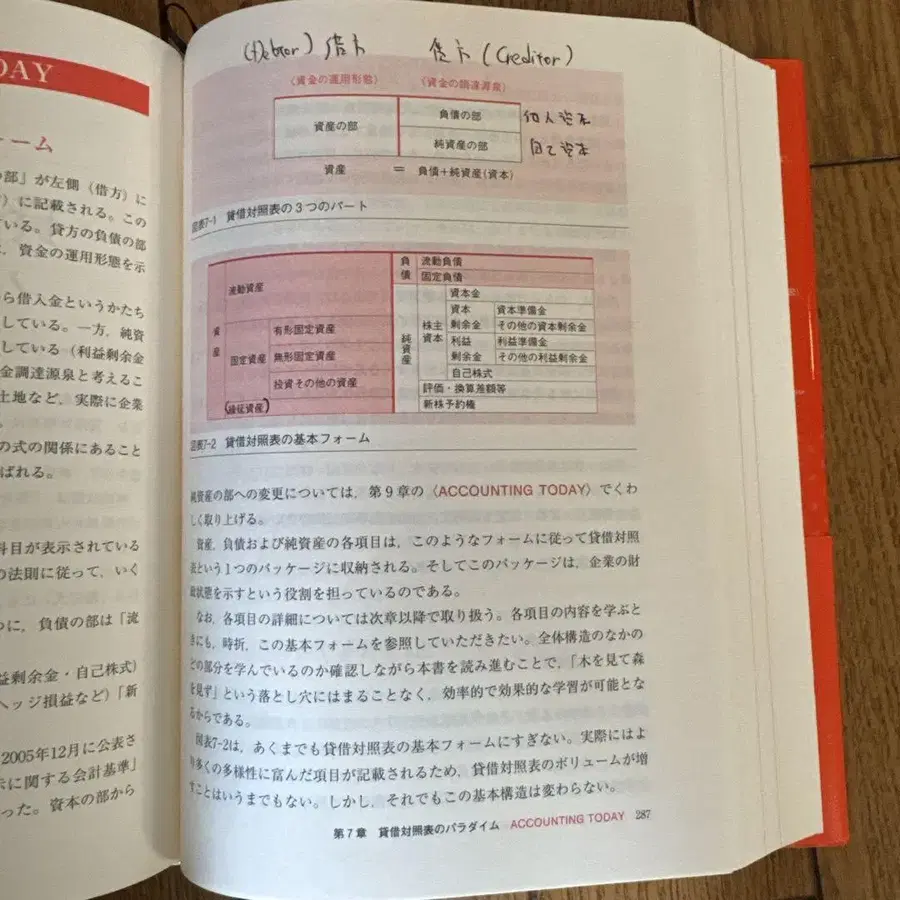 DAY
ーム
の部」が左側（借方）に
に記載される。この
ている。貸方の負債の部
，資金の運用形態を示
ら借入金というかたち
している。一方，純資
している（利益剰余金
金調達源泉と考えるこ
土地など，実際に企業
の式の関係にあること
ばれる。
科目が表示されている
の法則に従って，いく
つに，負債の部は「流
益剰余金・自己株式）
ヘッジ損益など）「新
2005年12月に公表さ
示に関する会計基準」
った。資本の部から
(Debtor) 借方 貸方 (Creditor)
〈資金の運用形態〉 〈資金の調達源泉〉
資産の部 負債の部 他人資本
純資産の部 自己資本
資産 ＝ 負債＋純資産(資本)
図表7-1 貸借対照表の3つのパート
資産 流動資産 負債 流動負債
固定負債
純資産 株主資本 資本金
固定資産 有形固定資産 資本剰余金 資本準備金
その他の資本剰余金
無形固定資産 利益剰余金 利益準備金
その他の利益剰余金
投資その他の資産 自己株式
評価・換算差額等
(繰延資産) 新株予約権
図表7-2 貸借対照表の基本フォーム
純資産の部への変更については，第9章の〈ACCOUNTING TODAY〉でくわ
しく取り上げる。
資産，負債および純資産の各項目は，このようなフォームに従って貸借対照
表という1つのパッケージに収納される。そしてこのパッケージは，企業の財
政状態を示すという役割を担っているのである。
なお，各項目の詳細については次章以降で取り扱う。各項目の内容を学ぶと
きにも，時折，この基本フォームを参照していただきたい。全体構造のなかの
どの部分を学んでいるのか確認しながら本書を読み進むことで，「木を見て森
を見ず」という落とし穴にはまることなく，効率的で効果的な学習が可能とな
るからである。
図表7-2は，あくまでも貸借対照表の基本フォームにすぎない。実際にはよ
り多くの多様性に富んだ項目が記載されるため，貸借対照表のボリュームが増
すことはいうまでもない。しかし，それでもこの基本構造は変わらない。
第7章 貸借対照表のパラダイム ACCOUNTING TODAY 287